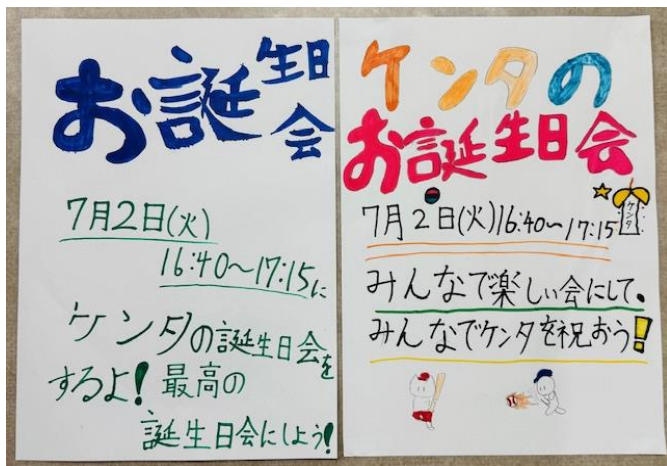 お誕生日会
7月2日(火)
16:40～17:15に
ケンタの誕生日会を
するよ！最高の
誕生日会にしよう！
ケンタの
お誕生日会
ケンタ
7月2日(火)16:40～17:15
みんなで楽しい会にして。
みんなでケンタを祝おう！